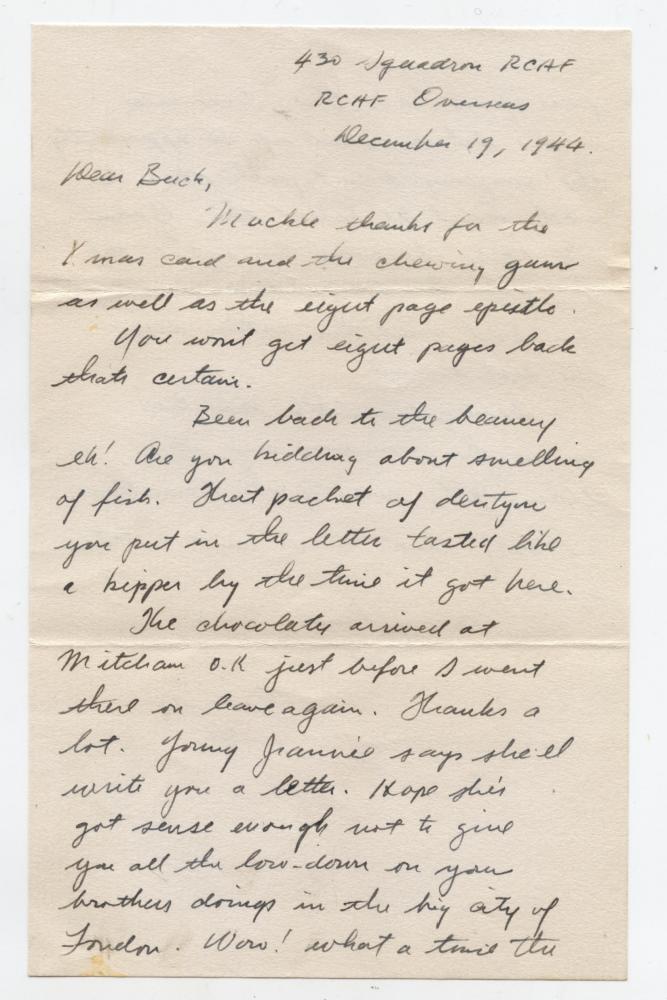 430 Squadron RCAF
RCAF Overseas
December 19, 1944.
Dear Buck,
Muckle thanks for the
Xmas card and the chewing gum
as well as the eight page epistle.
You won't get eight pages back
thats certain.
Been back to the beanery
eh! Are you kidding about smelling
of fish. That packet of dentyne
you put in the letter tasted like
a kipper by the time it got here.
The chocolates arrived at
Mitcham O.K just before I went
there on leave again. Thanks a
lot. Young Jeannie says she'll
write you a letter. Hope she's
got sense enough not to give
you all the low-down on your
brothers doings in the big city of
London. Wow! what a time the